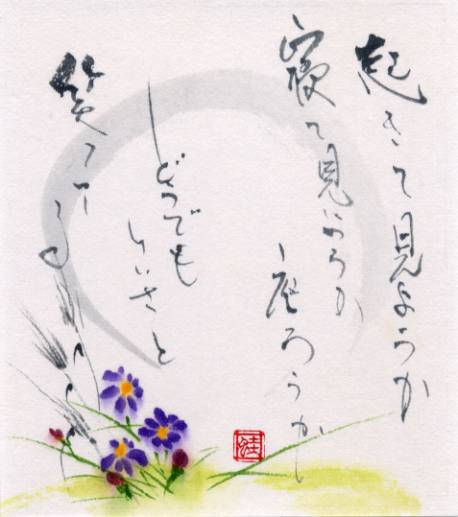 起きて見ようか
寝て見ようか
座ろうか
どうでも
いいさと
笑ってる